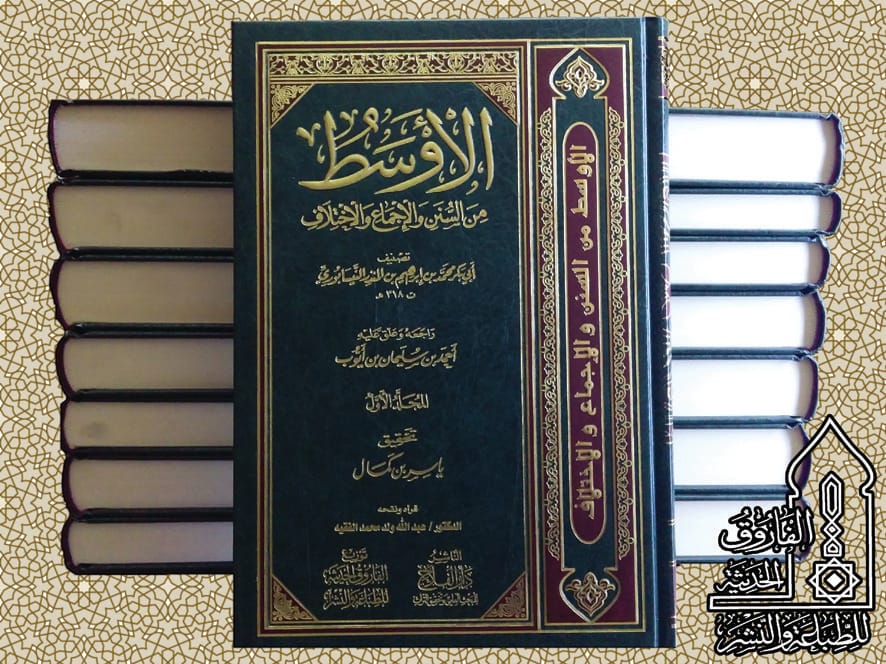 الأوسط
من السنن والإجماع والاختلاف
تصنيف
أبي بكر محمد بن إبراهيم بن المنذر النيسابوري
ت ٣١٨ هـ
راجعه وعلق عليه
أحمد بن سليمان بن أيوب
المجلد الأول
تحقيق
ياسر بن كمال
قراءه ونقحه
الدكتور/ عبد الله ولد محمد الفقيه
الناشر
دار الفلاح
للبحث العلمي وتحقيق التراث
توزيع
الفاروق الحديثة
للطباعة والنشر
الأوسط من السنن والإجماع والاختلاف
الفاروق
الحديثة
للطباعة والنشر